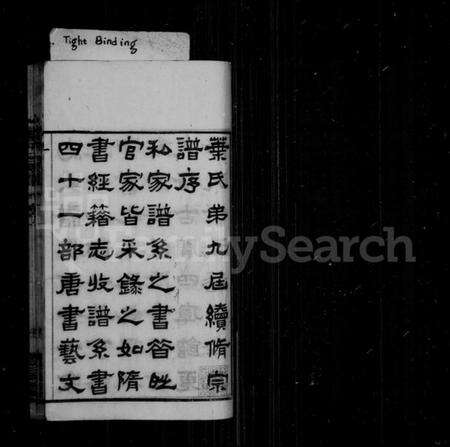 Tight Binding
葉氏弟九屆續脩宗
譜序
私家譜系之書昝𤯝
官家皆采錄之如隋
書經籍志收譜系書
四十一部唐書藝文
FamilySearch